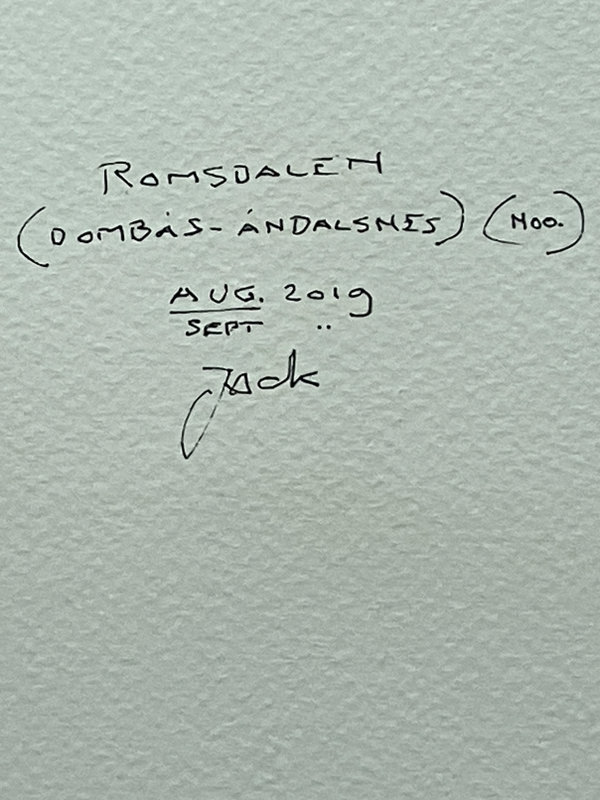 ROMSDALEN
(DOMBÅS-ÅNDALSNES) (NOO.)
AUG. 2019
SEPT "
Jack